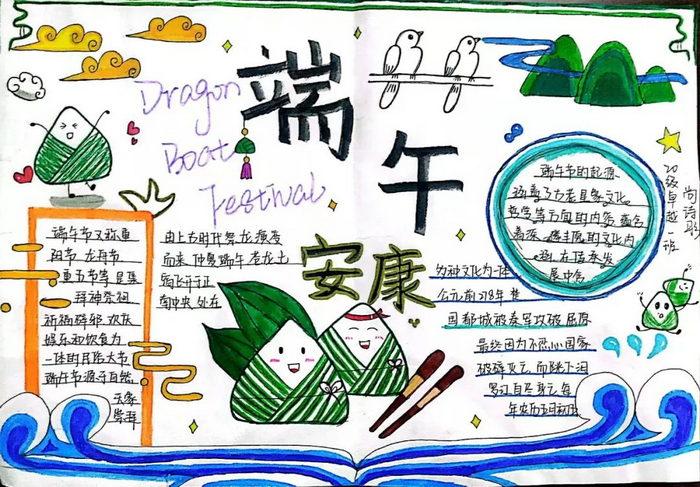 Dragon
Boat
Festival
端午
安康
端午节又称重
阳节 龙舟节
重五节等 是集
拜神祭祖
祈福辟邪 欢庆
娱乐和饮食为
一体的民俗大节
端午节源于自然
天象
崇拜
由上古时代祭龙演变
而来 仲夏端午 苍龙七
宿飞升于正
南中央 处在
端午节的起源
涵盖了古老星象文化
哲学等方面的内容 蕴含
着深邃丰厚的文化内
涵 在传承发
展中杂
多种文化为一体
公元前278年 楚
国都城被秦军攻破 屈原
最终因为不忍心国家
破碎灭亡 而跳下汨
罗江自尽身亡 每
年农历五月初五
20级卓越一班